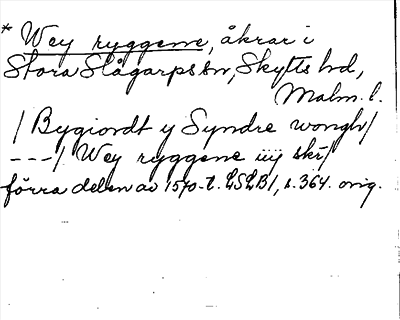 * Wey ryggene, åkrar i
Stora Slågarps sn, Skytts hd,
Malm. l.
/ Bygiordt y Syndre wongh/
---/ Wey ryggene iiij skr/
förra delen av 1570-t. LSLB1, s. 364. orig.